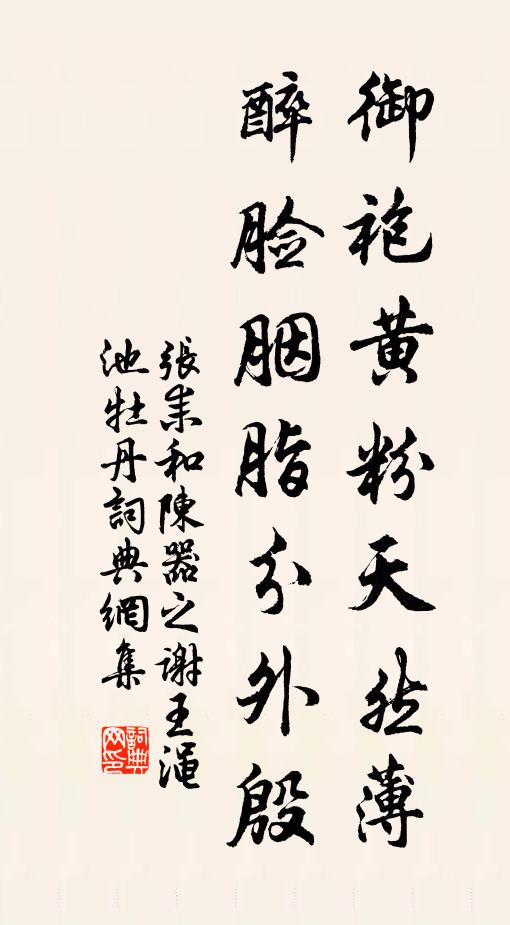 御袍黄粉天然薄
醉脸胭脂分外殷
張耒和陳器之謝王澠
池牡丹詞典網集
詞典
网印